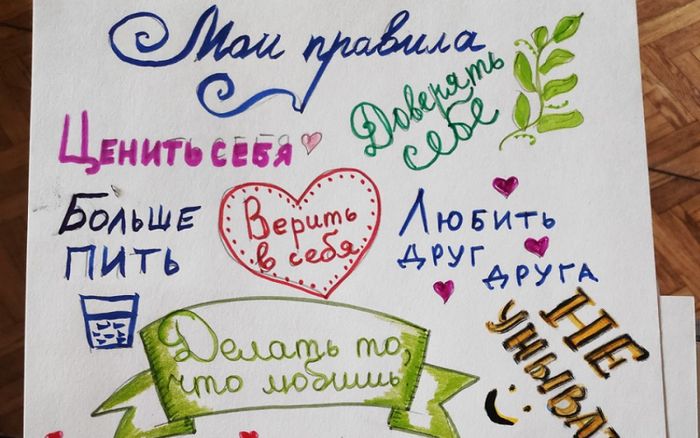 Мои правила
Доверять
себе
Ценить себя
Больше
пить
Верить
в себя
Любить
друг
друга
Делать то,
что любишь
Не